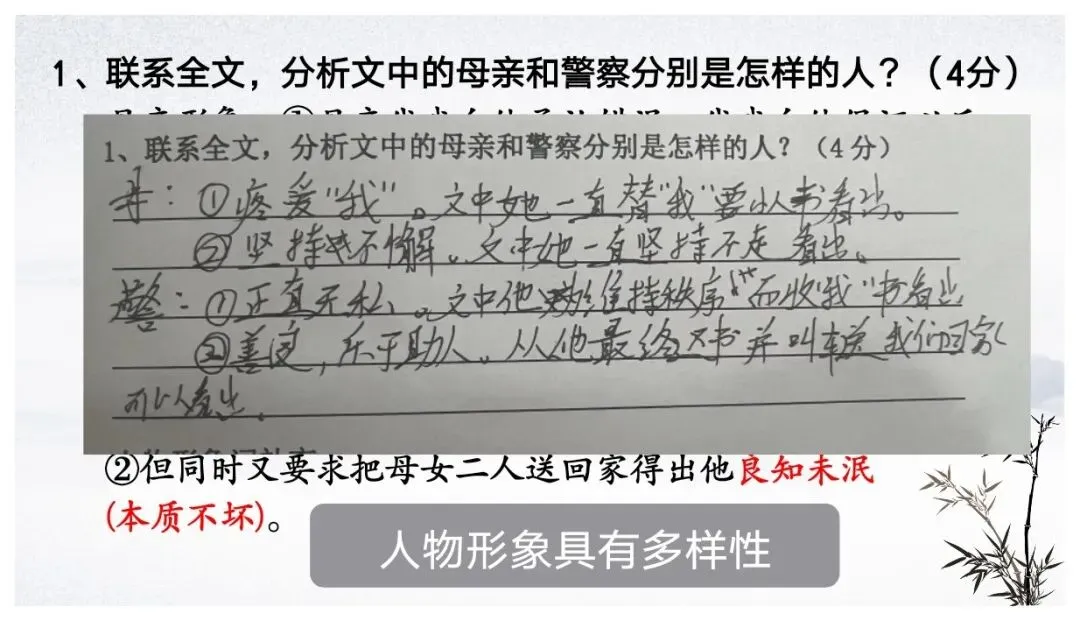 1、联系全文，分析文中的母亲和警察分别是怎样的人？（4分）
1、联系全文，分析文中的母亲和警察分别是怎样的人？（4分）
母：①疼爱“我”。文中她一直替“我”要书看出。
②坚持不懈。文中她一直坚持不走看出。
警：①正直无私。文中他维持秩序而收“我”书看出
②善良，乐于助人。从他最终又书并叫车送我们回家
可以看出。
②但同时又要求把母女二人送回家得出他良知未泯
(本质不坏)。
人物形象具有多样性